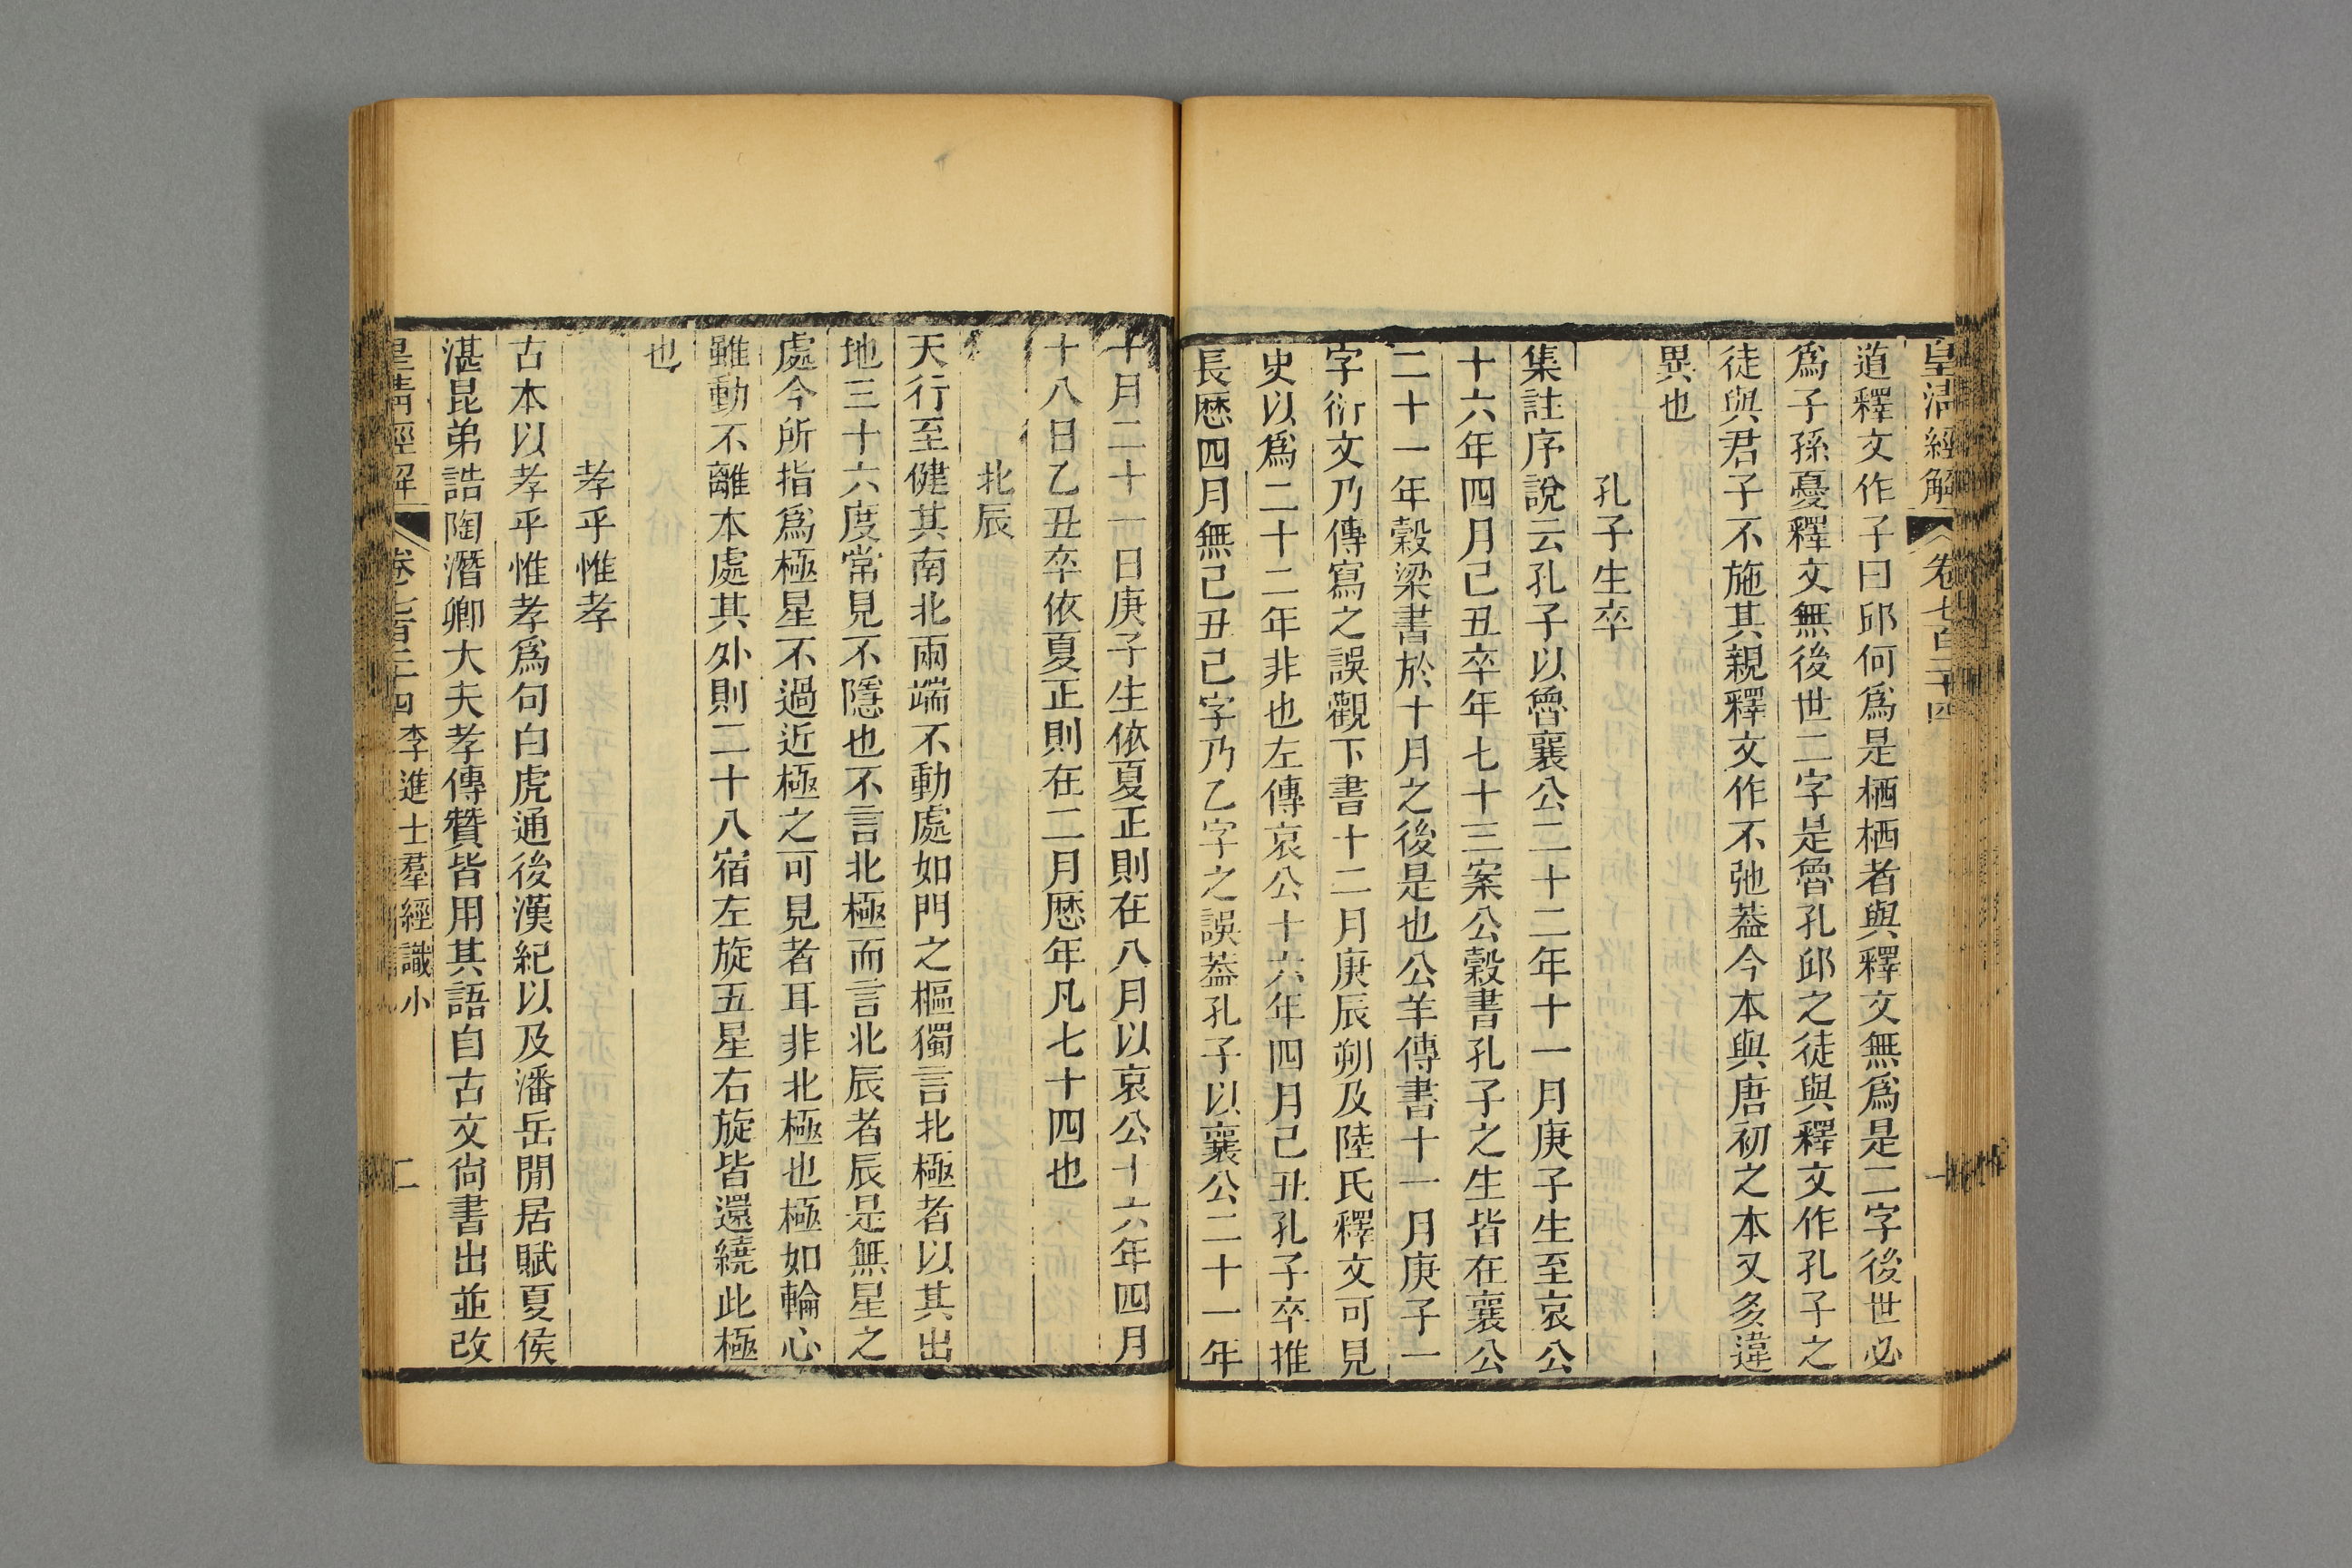 皇清經解
卷七百二十四
一
道釋文作子曰邱何爲是栖栖者與釋文無爲是二字後世必
爲子孫憂釋文無後世二字是魯孔邱之徒與釋文作孔子之
徒與君子不施其親釋文作不弛葢今本與唐初之本又多違
異也
孔子生卒
集註序說云孔子以魯襄公二十二年十一月庚子生至哀公
十六年四月己丑卒年七十三案公穀書孔子之生皆在襄公
二十一年穀梁書於十月之後是也公羊傳書十一月庚子一
字衍文乃傳寫之誤觀下書十二月庚辰朔及陸氏釋文可見
史以爲二十二年非也左傳哀公十六年四月己丑孔子卒推
長厯四月無己丑己字乃乙字之誤葢孔子以襄公二十一年
十月二十一日庚子生依夏正則在八月以哀公十六年四月
十八日乙丑卒依夏正則在二月厯年凡七十四也
北辰
天行至健其南北兩端不動處如門之樞獨言北極者以其出
地三十六度常見不隱也不言北極而言北辰者辰是無星之
處今所指爲極星不過近極之可見者耳非北極也極如輪心
雖動不離本處其外則二十八宿左旋五星右旋皆還繞此極
也
孝乎惟孝
古本以孝乎惟孝爲句白虎通後漢紀以及潘岳閒居賦夏侯
湛昆弟誥陶潛卿大夫孝傳贊皆用其語自古文尙書出並改
皇清經解
卷七百二十四
李進士羣經識小
二